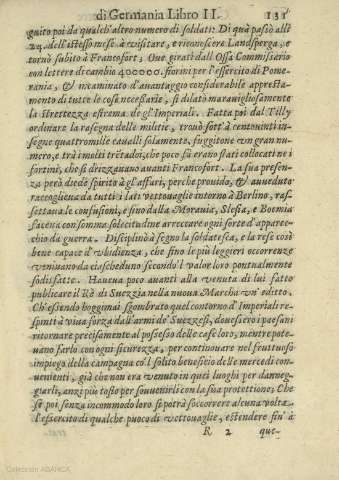 di Germania Libro II. 131
guito poi da qualch'altro numero di soldati: Di quà passò alli
24. dell'istesso mese à visitare, e riconoscere Landsperga, e
tornò subito à Francofort. Oue giratì dall'Ossa Commissario
con lettere di cambio 400000. fiorini per l'essercito di Pome-
rania, & incaminato d'auantaggio considerabile appresta-
mento di tutte le cose necessarie, si dilatò marauigliosamente
la strettezza estrema de gl'Imperiali. Fatta poi dal Tilly
ordinare la rasegna delle militie, trouò sott'à centouinti in-
segne quattromille caualli solamente, fuggitone vn gran nu-
mero, e trà i molti trè tadì, che poco fà erano stati collocati ne i
fortini, che si drizzauano auanti Francofort. La sua presen-
za però diede spirito à gl'affari, perche prouido, & aueduto
raccoglieua da tutti i lati vettouaglie intorno à Berlino, ras-
settaua le confusioni, e fino dalla Morauia, Slesia, e Boemia
facena con somma solecitudine arreccare ogni sorte d'apparec-
chio da guerra. Disciplinò à segno la soldatesca, e la rese così
bene capace d'vbidienza, che fino le più leggieri occorrenze
veniuano da ciascheduno secondo'l valor loro pontualmente
sodisfatte. Haueua poco auanti alla venuta di lui fatto
publicare il Rè di Suezzia nella nuoua Marcha vn'editto.
Ch'essendo hoggimai sgombrato quel contorno d'Imperiali re-
spinti à viua forza dall'armi de' Suezzesi, douessero i paesani
ritornare precisamente al possesso delle case loro, mentre pote-
uano farlo con ogni sicurezza, per continouare nel fruttuoso
impiego della campagna co'l solito beneficio delle mercedi con-
uenienti, già che non era venuto in quei luoghi per danneg-
giarli, anzi più tosto per souuenirli con la sua protettione; Che
se poi senza incommodo loro si potrà soccorrere alcuna volta
l'essercito di qualche puoco di vettouaglie, estendere fin'à
R 2 que-
Colección ABANCA